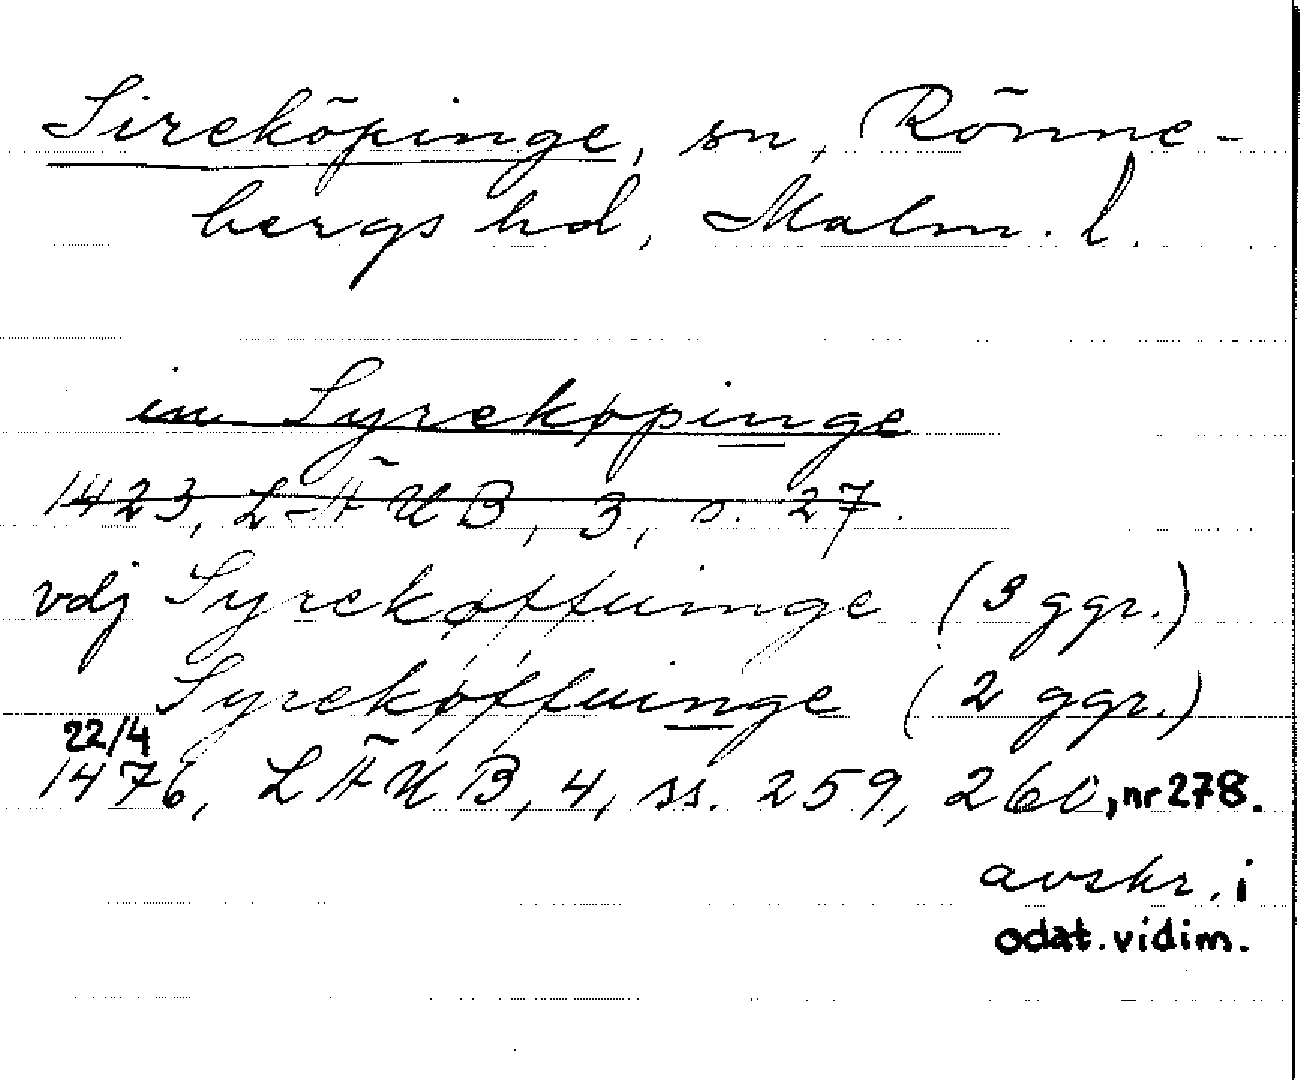 Sireköpinge, sn, Rönne-
bergs hd, Malm. l.
in Syrekøpinge
1423, LÄUB, 3, s. 27.
vdj Syrekøffuinge (3 ggr.)
Syrekøffuinge (2 ggr.)
22/4
1476, LÄUB, 4, ss. 259, 260, nr 278.
avskr. i
odat. vidim.